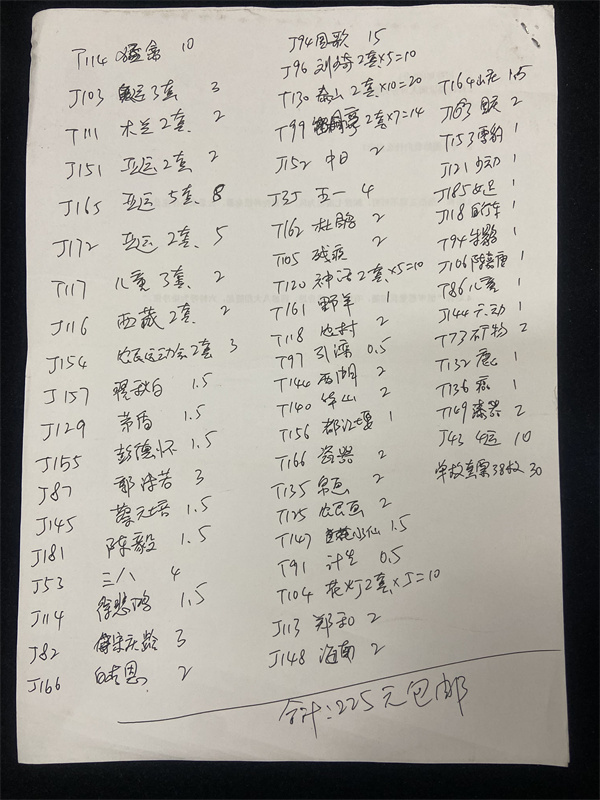 T114 猛禽 10
J103 奥运3套 3
T111 木兰2套 2
J151 亚运2套 2
J165 亚运5套 8
J172 亚运2套 5
T117 儿童3套 2
J116 西藏2套 2
J154 农民运动会2套 3
J157 瞿秋白 1.5
J129 茅盾 1.5
J155 彭德怀 1.5
J87 郭沫若 3
J145 蔡元培 1.5
J181 陈毅 1.5
J53 三八 4
J114 徐悲鸿 1.5
J82 宋庆龄 3
J166 白求恩 2
J94 国歌 15
J96 刘少奇2套×5=10
T130 泰山2套×10=20
T99 牡丹亭2套×7=14
J152 中日 2
J3J 五一 4
T162 杜鹃 2
T105 残疾 2
T120 神话2套×5=10
T161 野羊 1
T118 农村 2
T97 引滦 0.5
T144 西湖 2
T140 华山 2
T156 都江堰 1
T166 瓷器 2
T135 帛画 2
T125 农民画 2
T147 水仙 1.5
T91 计生 0.5
T104 花灯2套×J=10
J113 郑和 2
J148 海南 2
T164 山庄 1.5
J163 2
T153 雪豹 1
J121 少幼 1
J185 女足 1
J118 自行车 1
T94 朱鹮 1
J106 陈嘉庚 1
T86 儿童 1
J144 六.动 1
T73 矿物 2
T132 鹿 1
T136 癌 1
T149 漆器 2
J43 四运 10
单枚直票38枚 30
合计:225元包邮